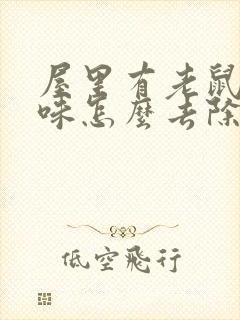 屋里有老鼠
味怎麼去除
低空飛行